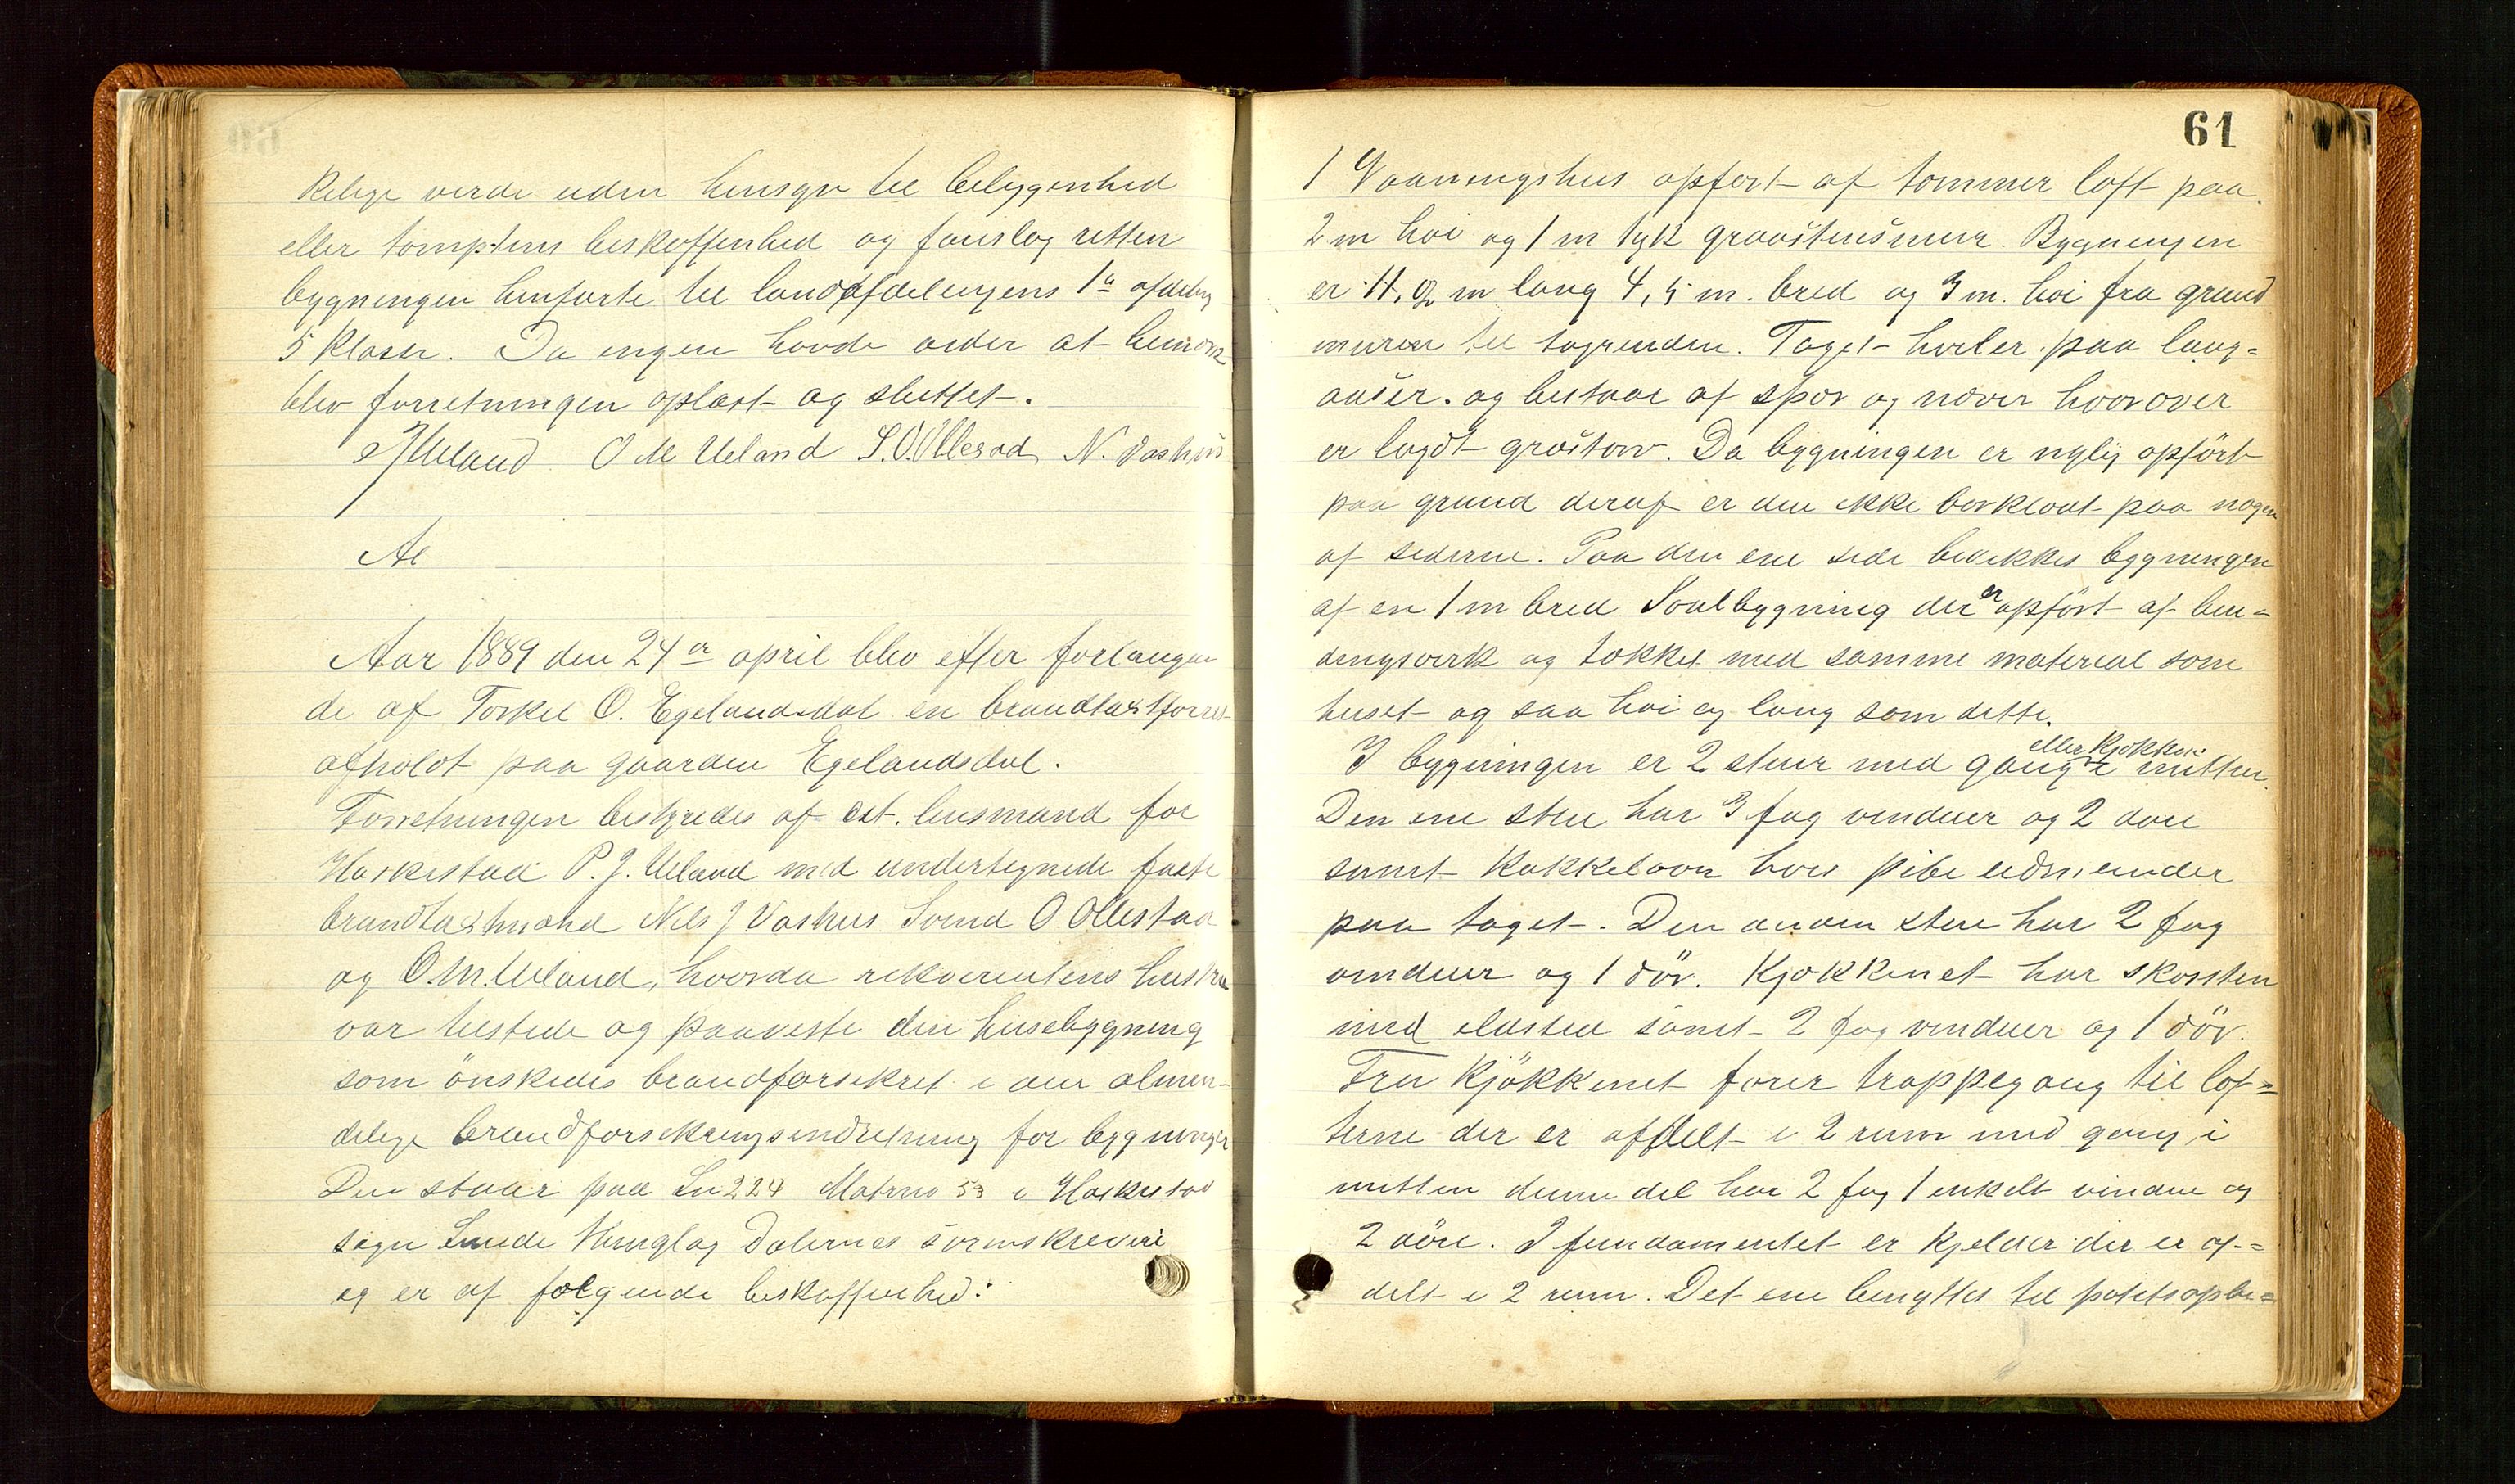 kelige verde uden hensyn til beliggenhed
eller tomptens beskaffenhed og foreslog retten
bygningen henførte til landafdelingens 1ste afdeling
5 klasse. Da ingen havde videre at bemærke
blev forretningen oplæst og sluttet.
Ueland O M Ueland S. O. Ollestad N. Vashus
Ae
Aar 1889 den 24de april blev efter forlangen
de af Torkel O. Egelandsdal en brandtaxtforret
afholdt paa gaarden Egelandsdal.
Forretningen bestyredes af cst. lensmand for
Heskestad P. J. Ueland med undertegnede faste
brandtaxtmænd Nils J Vashus Svend O Ollestad
og O. M. Ueland, hvorda rekvirentens hustru
var tilstede og paaviste den husebygning
som önskedes brandforsikret i den almin-
delige brandforsikringsindretning for bygninger
Den staar paa Ln 224 Matrno 53 i Heskestad
sogn Lunde thinglag Dalernes sorenskriveri
og er af følgende beskaffenhed:
61
1 Vaaningshus opført af tømmer loft paa
2 m høi og 1 m tyk graastensmur. Bygningen
er 11, m lang 4,5 m. bred og 3 m. høi fra grund
muren til tagrenden. Taget hviler paa lang=
aaser. og bestaar af spør og næver hvorover
er lagdt græstorv. Da bygningen er nylig opfört
paa grund deraf er den ikke bordklædt paa nogen
af siderne. Paa den ene side bedekkes bygningen
af en 1 m bred Svalbygning der er opfört af bin=
dingsverk og tækket med samme material som
huset og saa høi og lang som dette.
I bygningen er 2 stuer med gang eller kjøkken i mitten.
Den ene stue har 3 fag vinduer og 2 døre
samt kakkelovn hvis pibe udmunder
paa taget. Den anden stue har 2 fag
vinduer og 1 dör. Kjøkkenet har skorsten
med ildsted samt 2 fag vinduer og 1 dör.
Fra kjökkenet fører trappegang til lof=
terne der er afdelt i 2 rum med gang i
mitten denne del har 2 fag 1 enkelt vindue og
2 döre. I fundamentet er kjelder der er af=
delt i 2 rum. Det ene benyttes til potetsopbe=